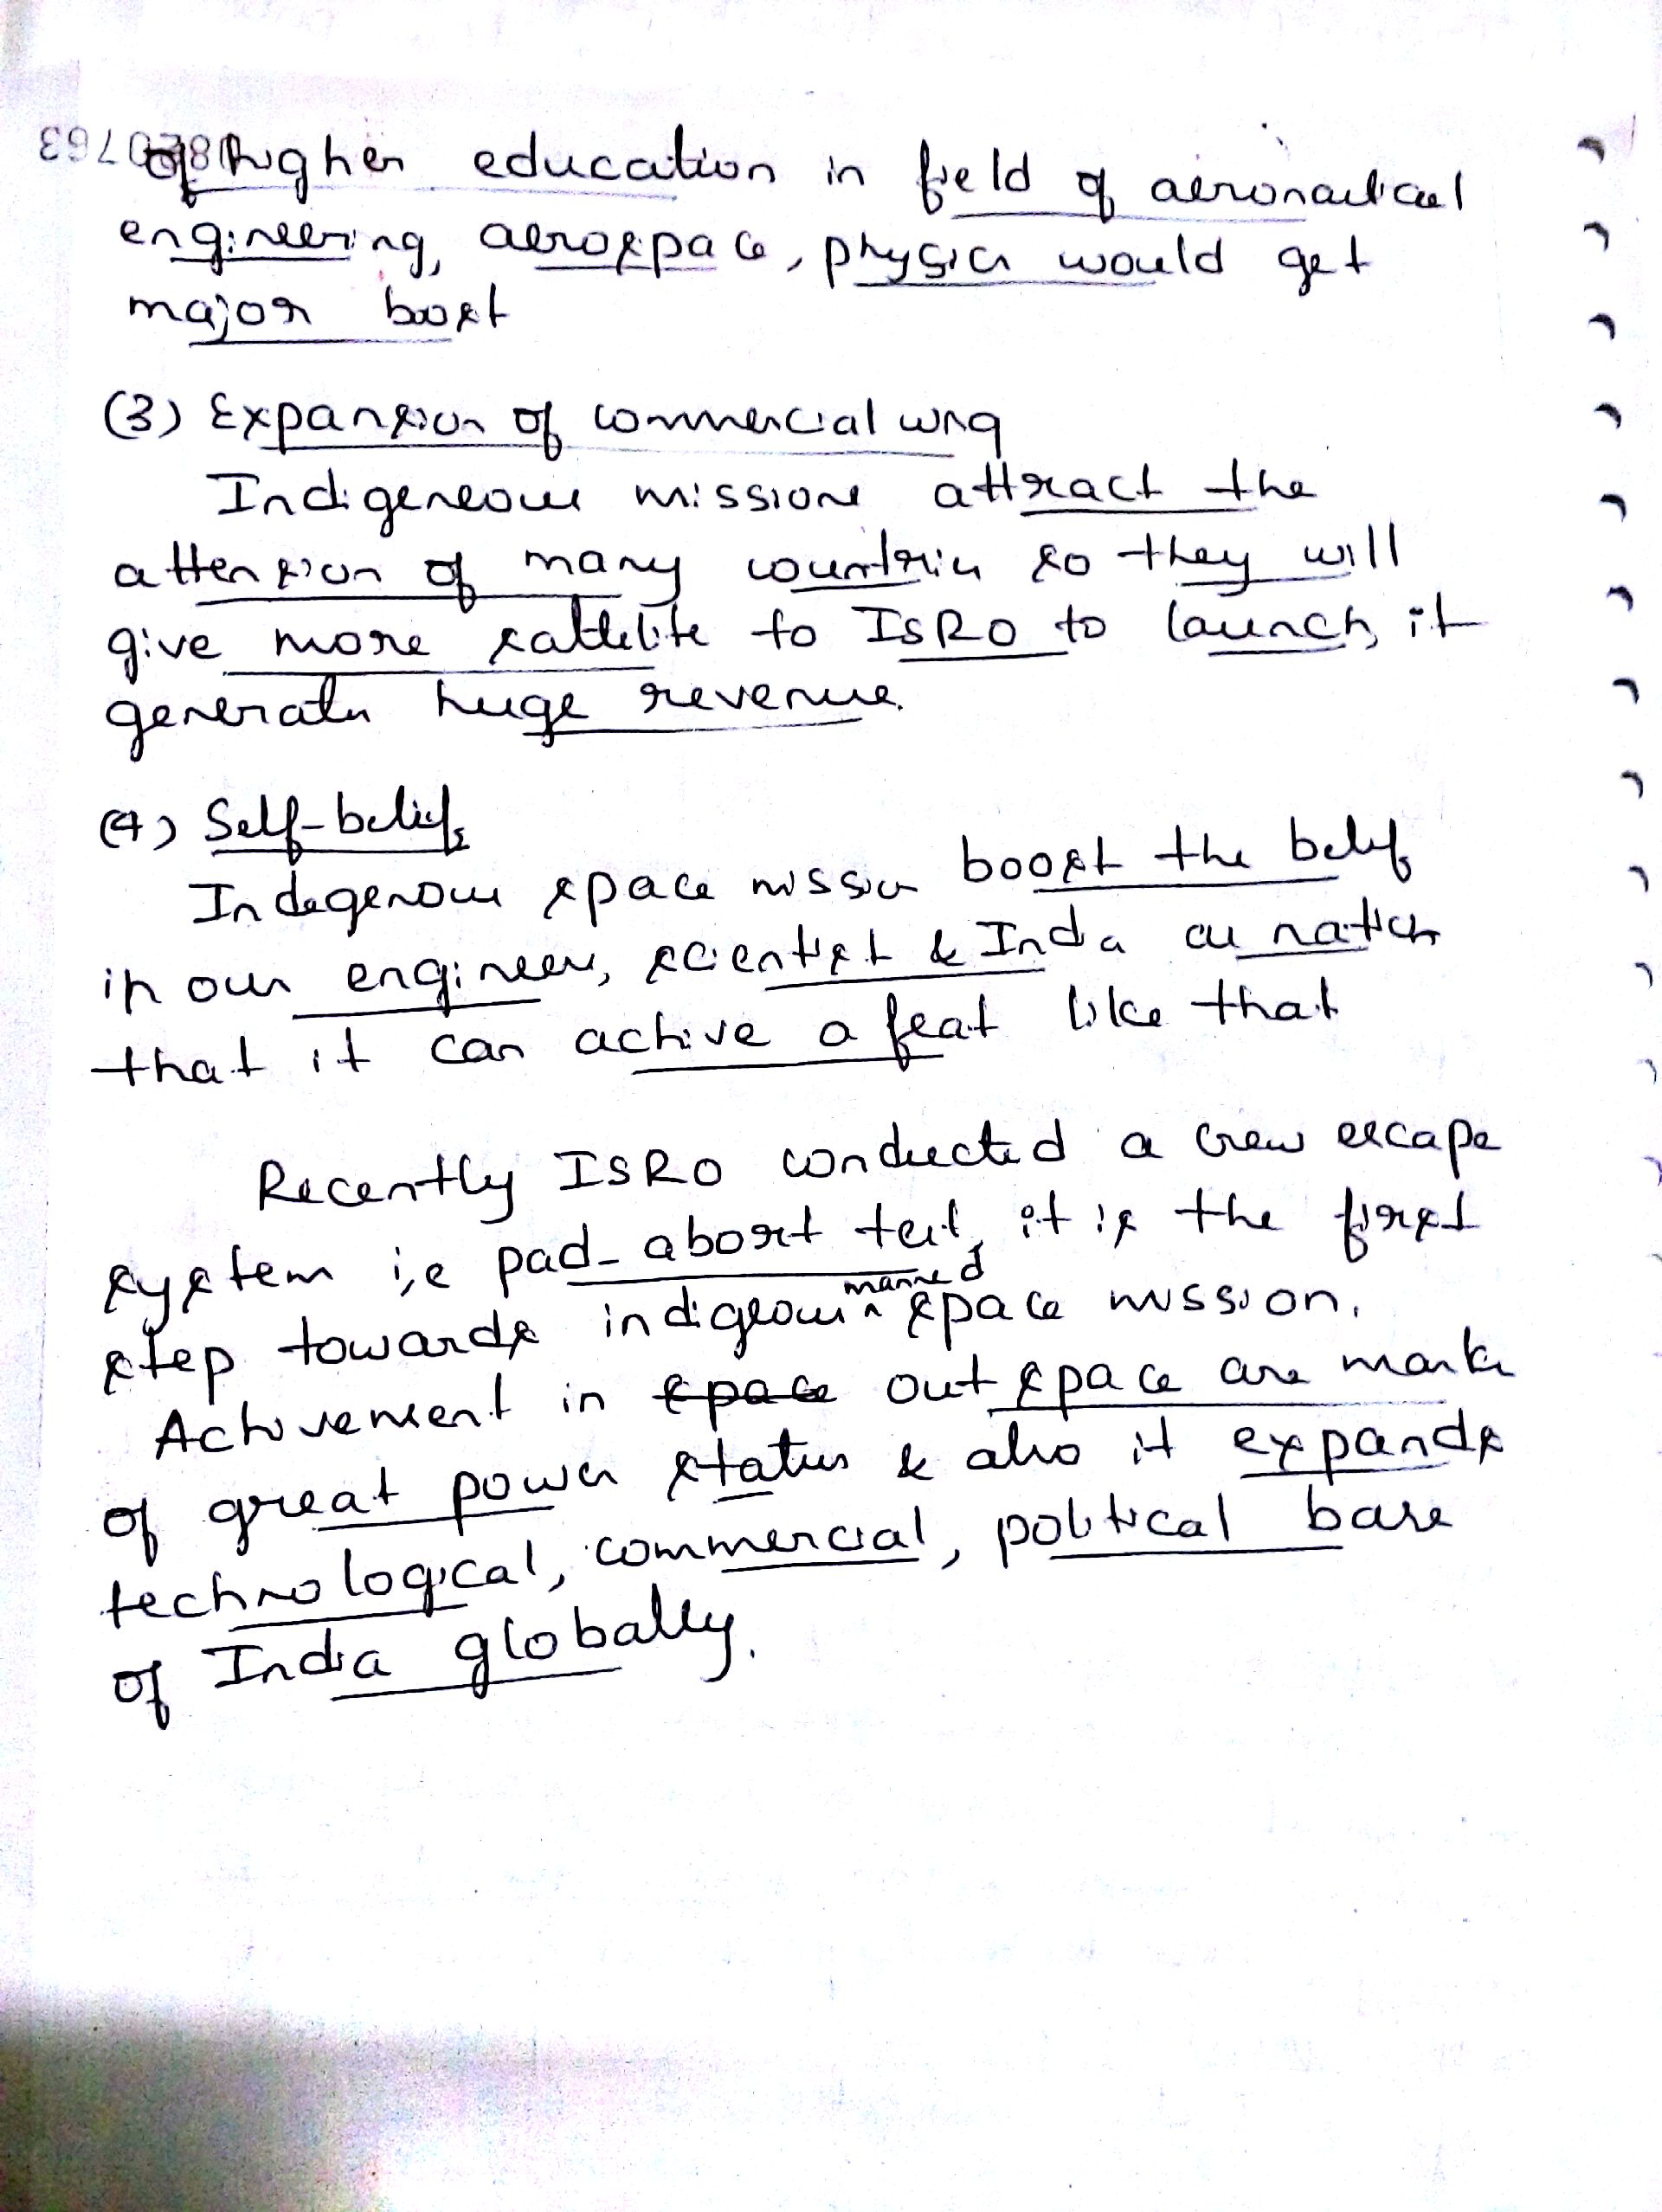 of higher education in field of aeronautical
engineering, aerospace, physics would get
major boost
(3) Expansion of commercial wing
Indigeneous missions attract the
attension of many countries so they will
give more sattelite to ISRO to launch, it
generates huge revenue.
(4) Self-belief
Indegenous space mission boost the belief
in our engineers, scientist & India as nation
that it can achive a feat like that
Recently ISRO conducted a crew escape
system i.e pad-abort test, it is the first
step towards indigeous manned space mission.
Achivement in space out space are marks
of great power status & also it expands
technological, commercial, political base
of India globally.